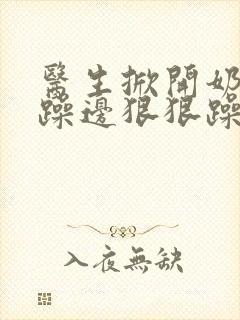 醫生掀開奶
躁邊狠狠躁
入夜無缺